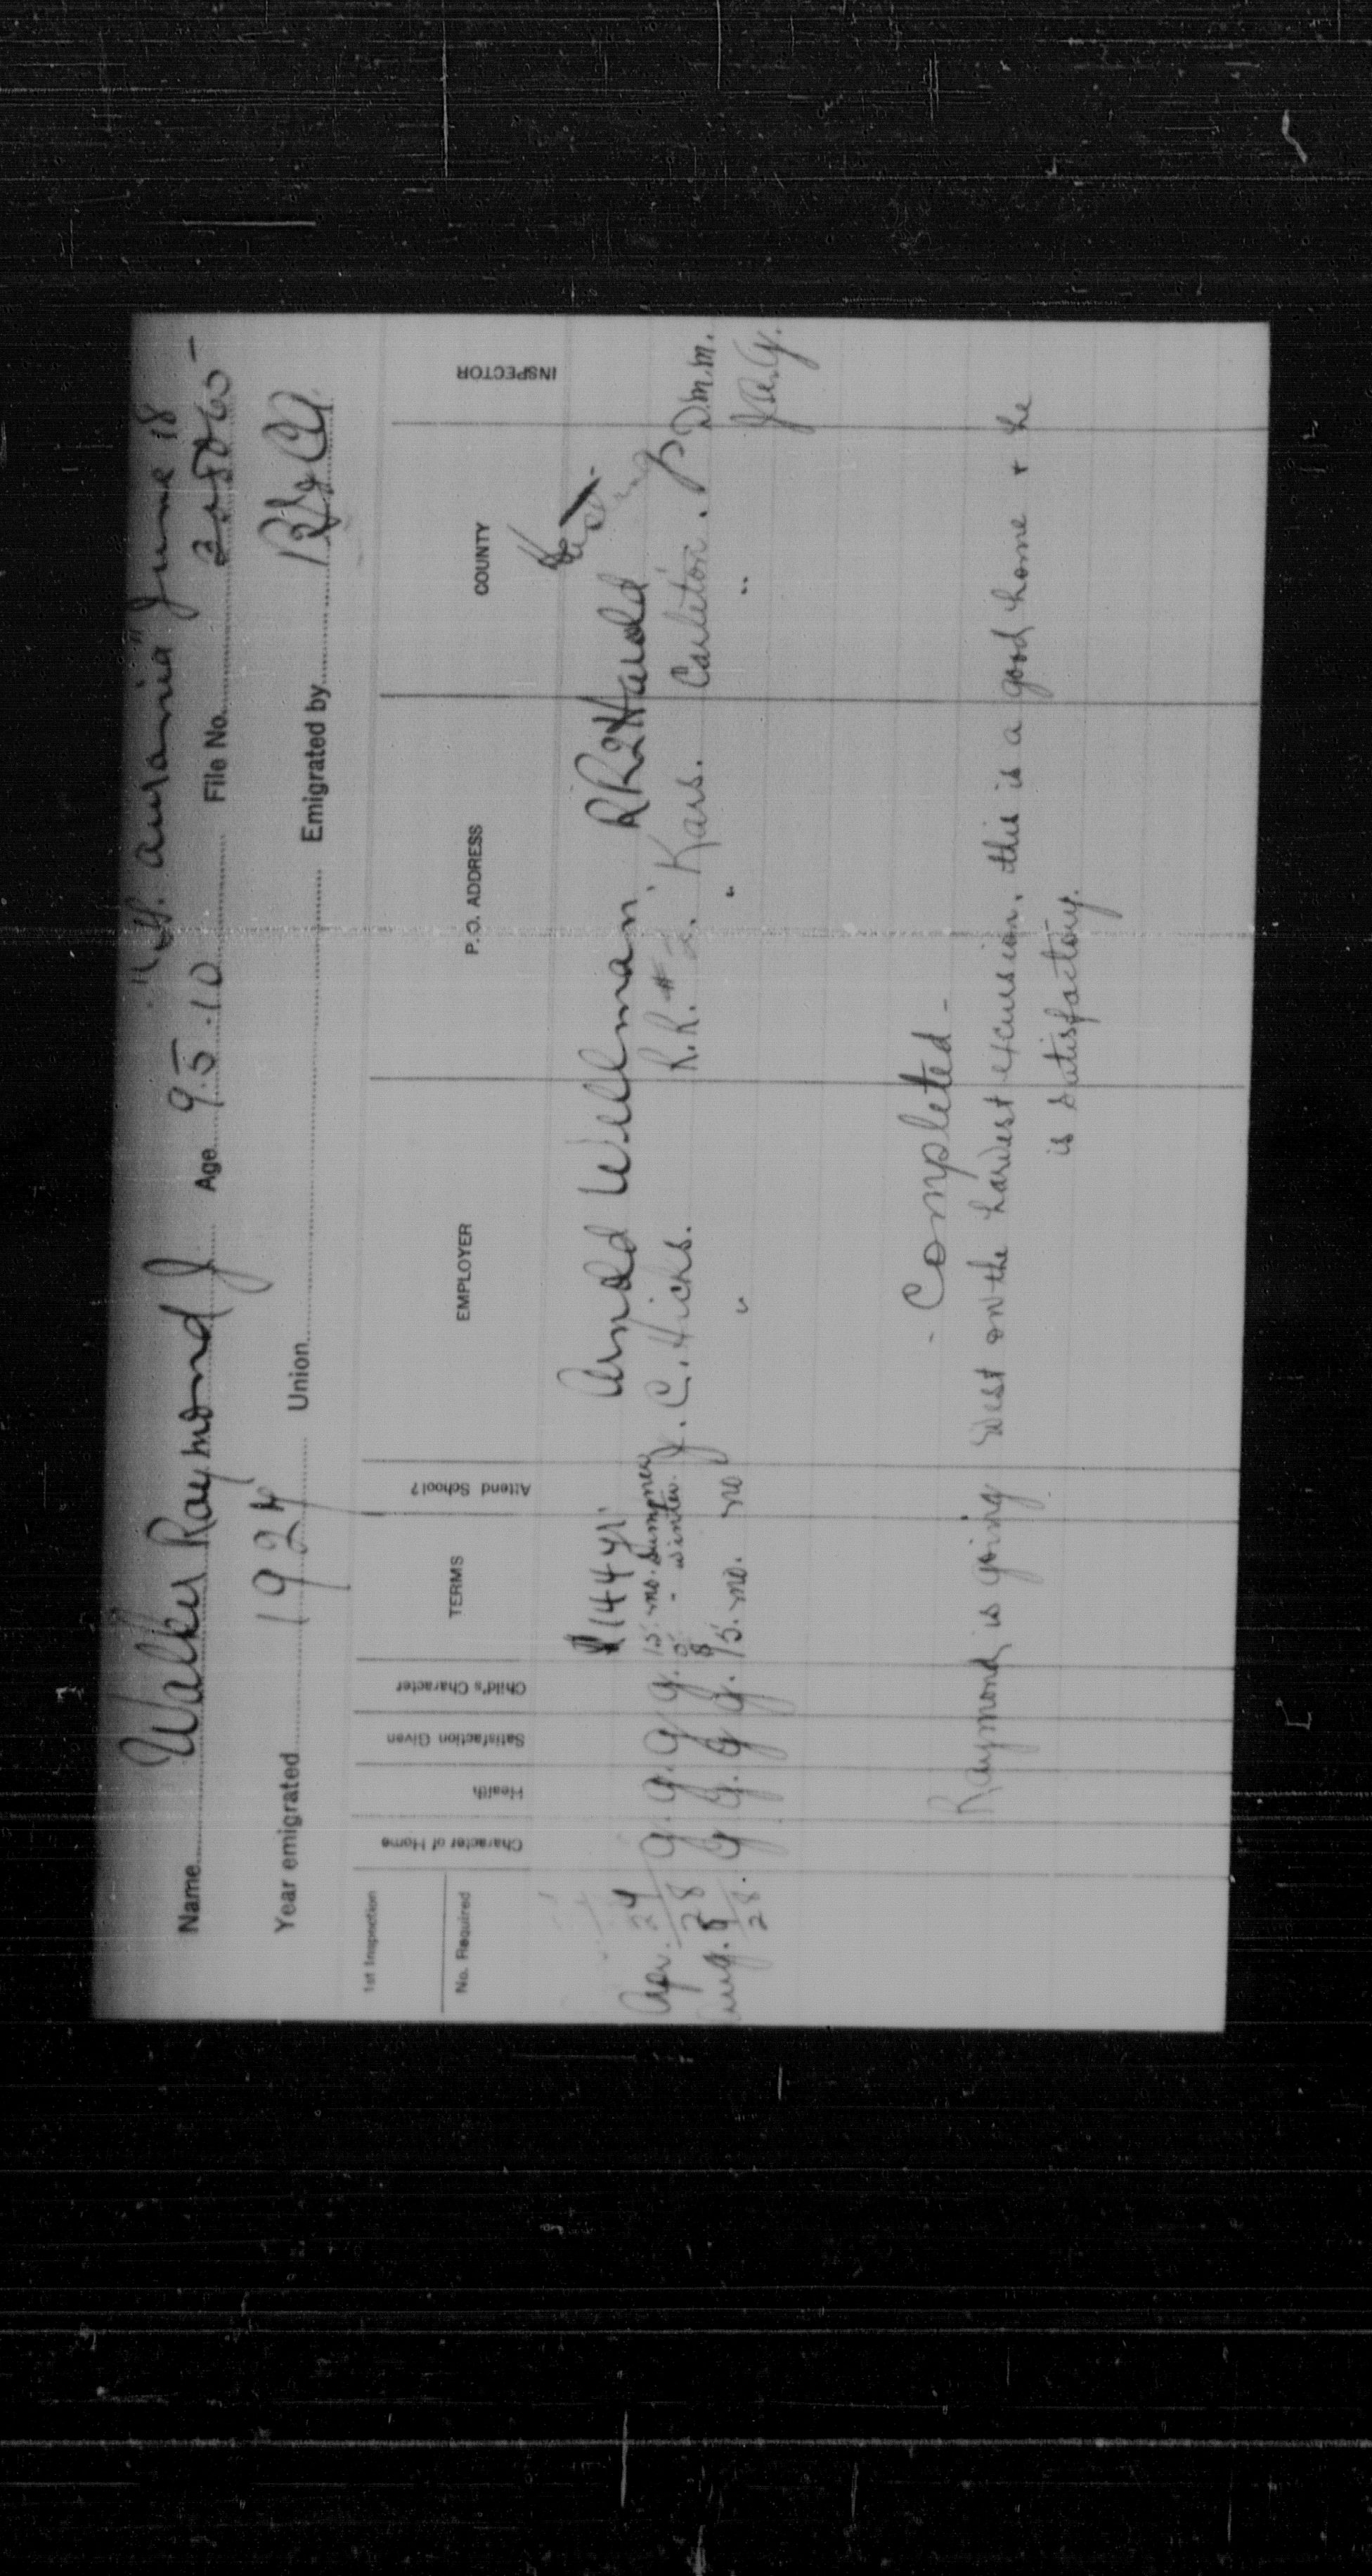 "Aurania" June 18
Name Walker Raymond J Age 9.5.10 File No.
Year emigrated 1924 Union Emigrated by
1st Inspection
No. Required Character of Home Health Satisfaction Given Child's Character TERMS Attend School? EMPLOYER P.O. ADDRESS COUNTY INSPECTOR
$144 yr Arnold Wellman RR2 Harold
Apr. 24/28 g. g. g. g. 15 mo. Summer J. C. Hicks. R.R. # 2. Kars. Carleton. D.M.M.
5 - winter
Aug. 8/28. g g. g g. $15. mo. no " " "
- Completed -
Raymond is going West on the harvest excursion, this is a good home + he
is satisfactory.